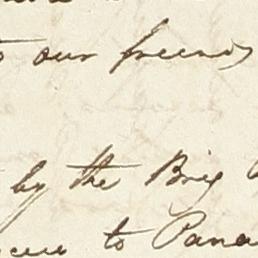 to our friends
by the Brig
to Pana